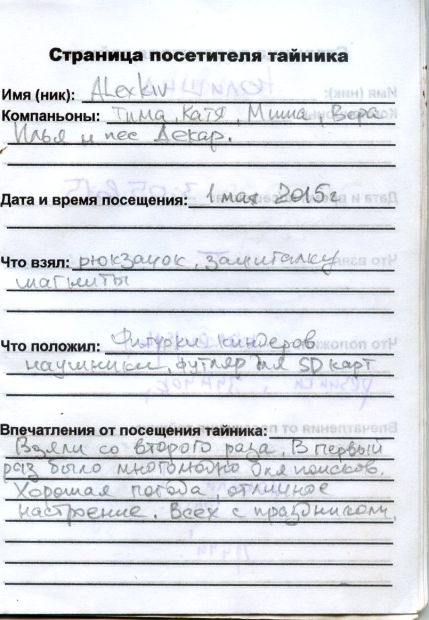 Страница посетителя тайника
Имя (ник): Alexkiv
Компаньоны: Тима, Катя, Миша, Вера
Илья и пес Декар.
Дата и время посещения: 1 мая 2015г
Что взял: рюкзачок,
магниты
Что положил: Фигурки киндеров
наушники, футляр для SD карт
Впечатления от посещения тайника:
Взяли со второго раза. В первый
раз было многолюдно для поисков.
Хорошая погода, отличное
настроение. Всех с праздником.